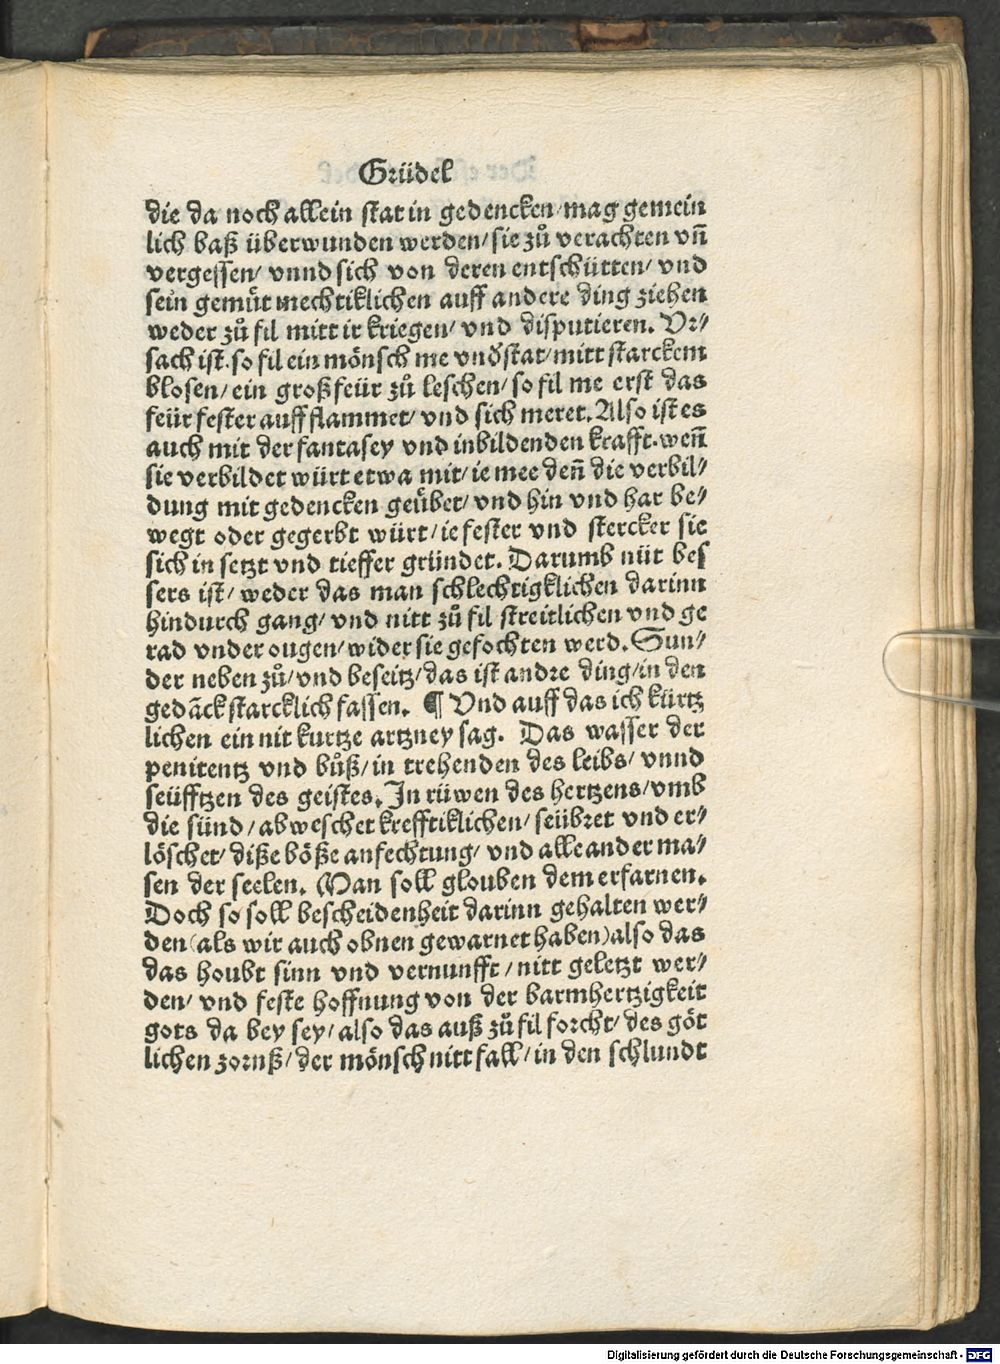 Gründel
die da noch allein stat in gedencken/mag gemein
lich baß überwunden werden/sie zů verachten vñ
vergessen/ vnnd sich von deren entschütten/ vnd
sein gemüt mechtiklichen auff andere ding ziehen
weder zů fil mitt ir kriegen/ vnd disputieren. Vr⸗
sach ist. so fil ein mönsch me vnd̕stat/mitt starckem
blosen/ein groß feür zů leschen/so fil me erst das
feür fester auff flammet/vnd sich meret. Also ist es
auch mit der fantasey vnd inbildenden krafft. weñ
sie verbildet würt etwa mit/ie mee deñ die verbil⸗
dung mit gedencken geübet/vnd hin vnd har be⸗
wegt oder gegerbt würt/ie fester vnd stercker sie
sich in setzt vnd tieffer gründet. Darumb nüt bes
sers ist/ weder das man schlechtigklichen darinn
hindurch gang/ vnd nitt zů fil streitlichen vnd ge
rad vnder ougen/wider sie gefochten werd. Sun⸗
der neben zů/vnd beseitz/das ist andre ding/in den
gedāck starcklich fassen. ¶ Vnd auff das ich kürtz
lichen ein nit kurtze artzney sag. Das wasser der
penitentz vnd bůß/in trehenden des leibs/ vnnd
seüfftzen des geistes. In rüwen des hertzens/vmb
die sünd/abweschet krefftiklichen/seübret vnd er⸗
löschet/diße böße anfechtung/ vnd alle ander ma⸗
sen der seelen. Man soll glouben dem erfarnen.
Doch so soll bescheidenheit darinn gehalten wer⸗
den(als wir auch obnen gewarnet haben)also das
das houbt sinn vnd vernunfft/nitt geletzt wer⸗
den/ vnd feste hoffnung von der barmhertzigkeit
gots da bey sey/also das auß zů fil forcht/des göt
lichen zornß/der mönsch nitt fall/in den schlundt
Digitalisierung gefördert durch die Deutsche Forschungsgemeinschaft - DFG